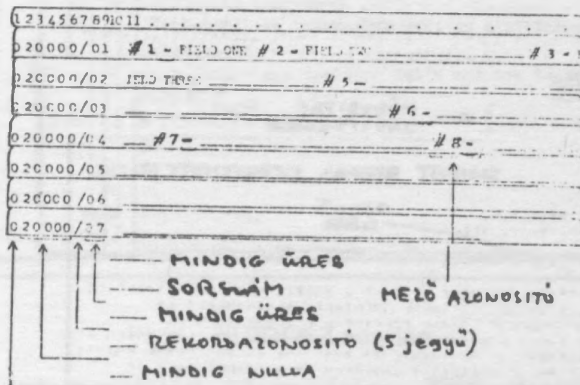 1234567891011 . . . . . . . . . . . .
020000/01 #1- FIELD ONE #2- FIELD TWO #3-
020000/02 IELD THREE #5-
020000/03 #6-
020000/04 #7- #8-
020000/05
020000/06
020000/07
MINDIG ÜRES
SORSZÁM MEZŐ AZONOSITÓ
MINDIG ÜRES
REKORDAZONOSITÓ (5 jegyű)
MINDIG NULLA